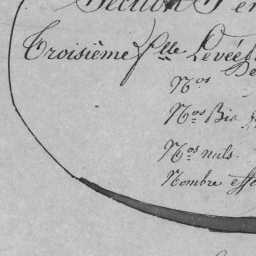 Section
Troisième f.lle Levée
N.os
N.os Bis
N.os nuls.
Nombre effe